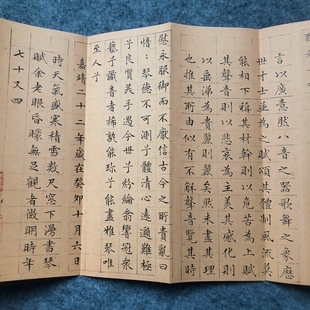 言以廣意然八音之器歌舞之象歷
世才士並為之賦頌其體制風流莫
相襲稱其材幹則以危苦為上賦
其聲音則以悲哀為主美其感化則
以垂涕為貴麗則麗矣然未盡其理
也推其所由似元不解聲音覽其
慰永服御而不厭信古今之所貴亂曰
愔:琴德不可測兮體清心遠邈難極
兮良質美手遇今世兮紛綸翕響冠衆
藝兮識音者希孰能珍兮能盡雅琴唯
至人兮
嘉靖二十二年歲在癸卯十月六日
時天氣嚴寒積雪數尺窓下漫書琴
賦余老眼昏矇無足觀者徵明時年
七十又四